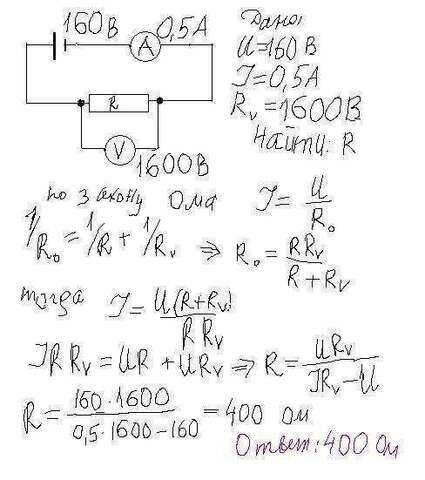 160В 0,5А
A
R
V
1600В
Дано:
U=160В
I=0,5А
Rv=1600В
Найти: R
по закону Ома I=U/R₀
1/R₀=1/R+1/Rv ⇒ R₀=RRv/R+Rv
тогда I=U(R+Rv)/RRv
IRRv=UR+URv ⇒ R=URv/IRv-U
R=160·1600/0,5·1600-160=400 ом
Ответ: 400 Ом